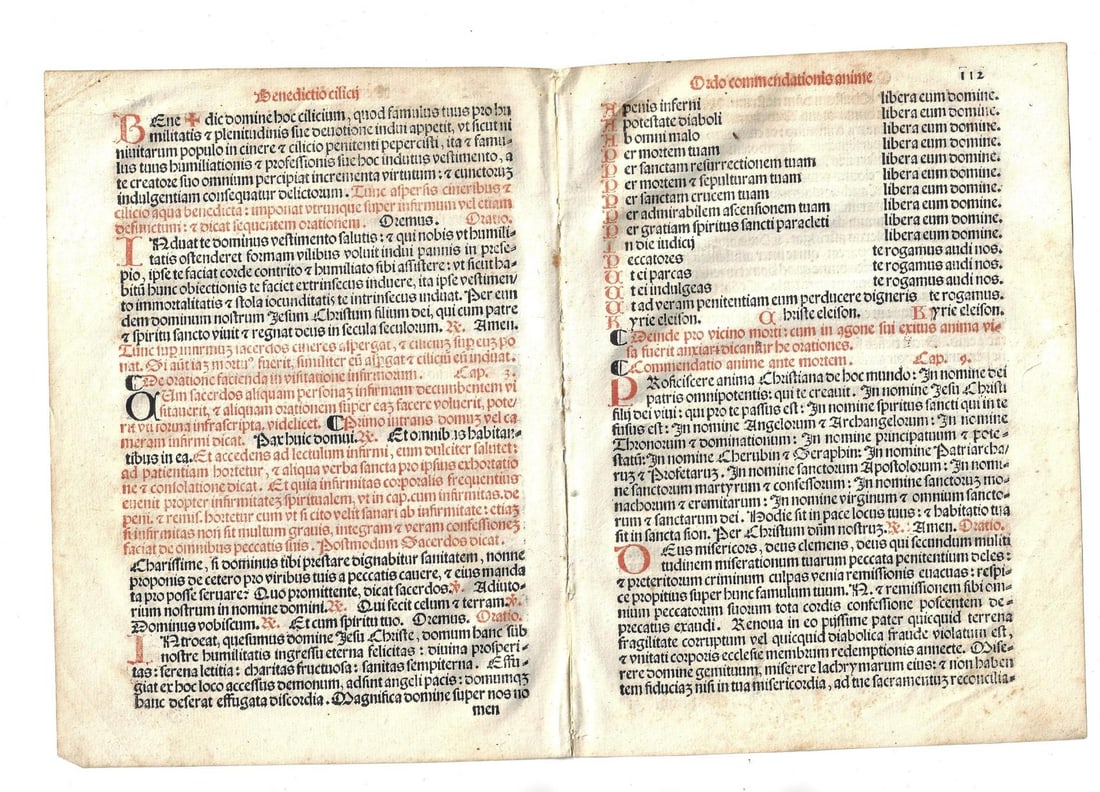 Benedictiō cilicij
BEne ✠ dic domine hoc cilicium, quod famulus tuus pro hu
militatis ⁊ plenitudinis sue deuotione indui appetit, vt sicut ni
niuitarum populo in cinere ⁊ cilicio penitenti pepercisti, ita ⁊ famu-
lus tuus humiliationis ⁊ professionis sue hoc indutus vestimento, a
te creatore suo omnium percipiat incrementa virtutum: ⁊ cunctorūz
indulgentiam consequatur delictorum. Tunc aspersis cineribus ⁊
cilicio aqua benedicta: imponat vtrunque super infirmum vel etiam
defunctum: ⁊ dicat sequentem orationem. Oremus. Oratio.
INduat te dominus vestimento salutis: ⁊ qui nobis vt humili-
tatis ostenderet formam vilibus voluit indui pannis in prese-
pio, ipse te faciat corde contrito ⁊ humiliato sibi assistere: vt sicut ha-
bitū hunc obiectionis te faciet extrinsecus induere, ita ipse vestimen-
to immortalitatis ⁊ stola iocunditatis te intrinsecus induat. Per eun
dem dominum nostrum Jesum Christum filium dei, qui cum patre
⁊ spiritu sancto viuit ⁊ regnat deus in secula seculorum. ℟. Amen.
Tunc sup infirmuz sacerdos cineres aspergat, ⁊ ciliciuz sup euz po
nat. Si aūt iaz mortu⁹ fuerit, similiter eū aspgat ⁊ ciliciū eū induat.
¶ De oratione facienda in visitatione infirmorum. Cap. 3.
QUm sacerdos aliquam personaz infirmam decumbentem vi
sitauerit, ⁊ aliquam orationem super eaz facere voluerit, pote/
rit vti forma infrascripta, videlicet. ¶ Primo intrans domuz vel ca
meram infirmi dicat. Pax huic domui. ℟. Et omnibus habitan-
tibus in ea. Et accedens ad lectulum infirmi, eum dulciter salutet:
ad patientiam hortetur, ⁊ aliqua verba sancta pro ipsius exhortatio
ne ⁊ consolatione dicat. Et quia infirmitas corporalis frequentius
euenit propter infirmitatez spiritualem, vt in cap. cum infirmitas. de
peni. ⁊ remis. hortetur eum vt si cito velit sanari ab infirmitate: etiaz
si infirmitas non sit multum grauis, integram ⁊ veram confessionez
faciat de omnibus peccatis suis. Postmodum Sacerdos dicat.
Charissime, si dominus tibi prestare dignabitur sanitatem, nonne
proponis de cetero pro viribus tuis a peccatis cauere, ⁊ eius manda
ta pro posse seruare? Quo promittente, dicat sacerdos ℣. Adiuto-
rium nostrum in nomine domini. ℟. Qui fecit celum ⁊ terram. ℣.
Dominus vobiscum. ℟. Et cum spiritu tuo. Oremus. Oratio.
INtroeat, quesumus domine Jesu Christe, domum hanc sub
nostre humilitatis ingressu eterna felicitas: diuina prosperi-
tas: serena letitia: charitas fructuosa: sanitas sempiterna. Effu-
giat ex hoc loco accessus demonum, adsint angeli pacis: domumqz
hanc deserat effugata discordia. Magnifica domine super nos no
men
Ordo commendationis anime 112
A penis inferni libera eum domine.
A potestate diaboli libera eum domine.
Ab omni malo libera eum domine.
Per mortem tuam libera eum domine.
Per sanctam resurrectionem tuam libera eum domine.
Per mortem ⁊ sepulturam tuam libera eum domine.
Per sanctam crucem tuam libera eum domine.
Per admirabilem ascensionem tuam libera eum domine.
Per gratiam spiritus sancti paracleti libera eum domine.
In die iudicij libera eum domine.
Peccatores te rogamus audi nos.
Ut ei parcas te rogamus audi nos.
Ut ei indulgeas te rogamus audi nos.
Ut ad veram penitentiam eum perducere digneris te rogamus.
Kyrie eleison. Christe eleison. Kyrie eleison.
¶ Deinde pro vicino morti: cum in agone sui exitus anima vi-
sa fuerit anxiari dicantur he orationes.
¶ Commendatio anime ante mortem. Cap. 9.
PRoficiscere anima Christiana de hoc mundo: In nomine dei
patris omnipotentis: qui te creauit. In nomine Jesu Christi
filij dei viui: qui pro te passus est: In nomine spiritus sancti qui in te
fusus est: In nomine Angelorum ⁊ Archangelorum: In nomine
Thronorum ⁊ dominationum: In nomine principatuum ⁊ pote-
statū: In nomine Cherubin ⁊ Seraphin: In nomine Patriarcha/
ruz ⁊ Prophetaruz. In nomine sanctorum Apostolorum: In nomi-
ne sanctorum martyrum ⁊ confessorum: In nomine sanctoruz mo-
nachorum ⁊ eremitarum: In nomine virginum ⁊ omnium sancto-
rum ⁊ sanctarum dei. Hodie sit in pace locus tuus: ⁊ habitatio tua
sit in sancta sion. Per Christum dnm nostruz. ℟. Amen. Oratio.
DEus misericors, deus clemens, deus qui secundum multi
tudinem miserationum tuarum peccata penitentium deles:
⁊ preteritorum criminum culpas venia remissionis euacuas: respi-
ce propitius super hunc famulum tuum. N. ⁊ remissionem sibi om-
nium peccatorum suorum tota cordis confessione poscentem de-
precatus exaudi. Renoua in eo pijssime pater quicquid terrena
fragilitate corruptum vel quicquid diabolica fraude violatum est,
⁊ vnitati corporis ecclesie membrum redemptionis annecte. Mise-
rere domine gemituum, miserere lachrymarum eius: ⁊ non haben
tem fiduciaz nisi in tua misericordia, ad tue sacramentuz reconcilia-